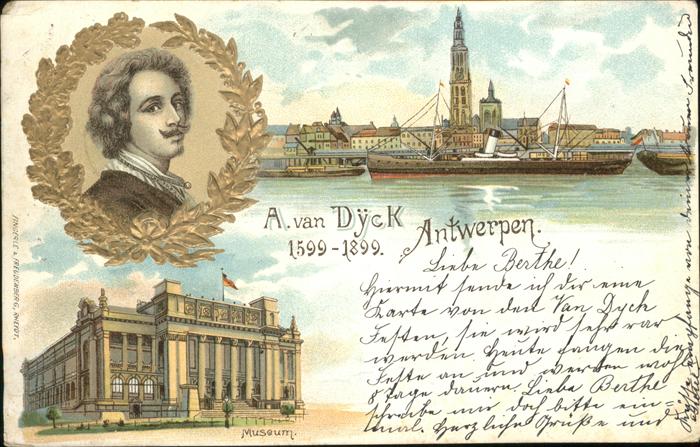 A. van Dÿck
1599-1899.
Antwerpen.
Liebe Berthe!
Hiermit sende ich dir eine
Karte von den Van Dyck
Festen, sie wird sehr rar
werden. Heute fangen die
Feste an und werden wohl
8 Tage dauern. Liebe Berthe
schreibe mir doch bitte ein=
mal. Herzliche Grüße und
Museum.